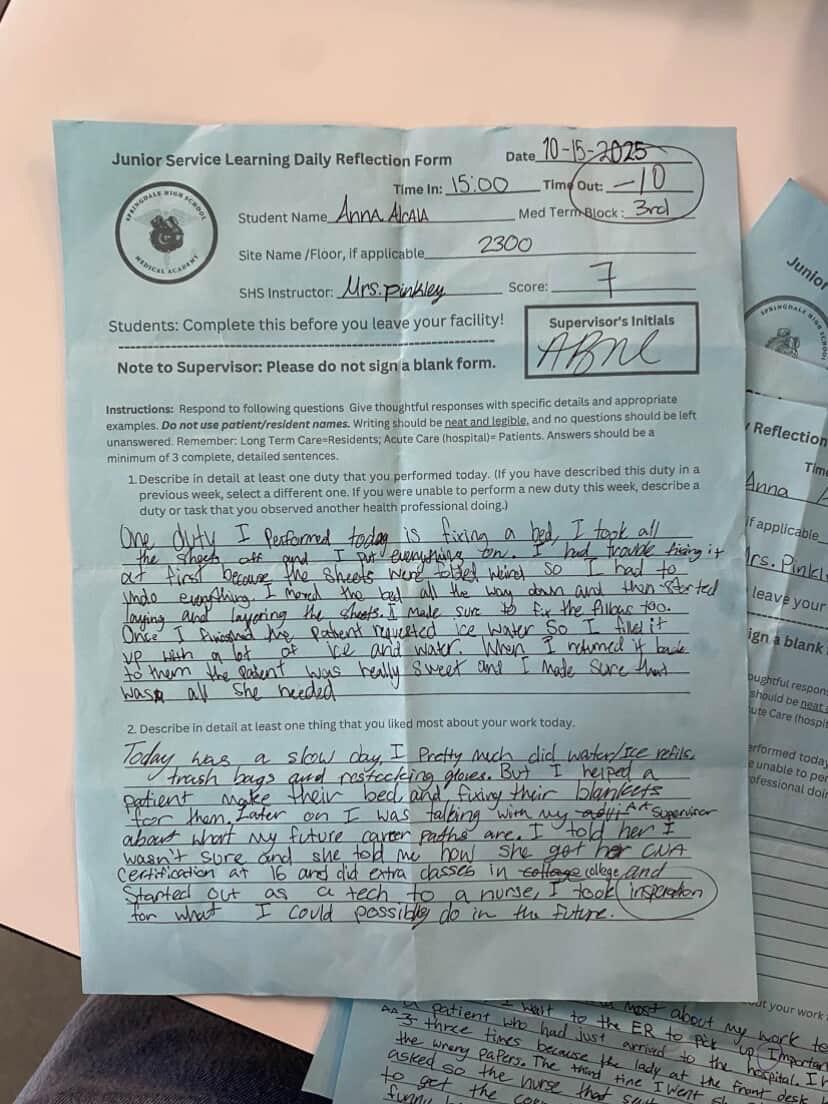 Junior Service Learning Daily Reflection Form
Date 10-15-2025
Time In: 15:00 Time Out: -10
SPRINGDALE HIGH SCHOOL
MEDICAL ACADEMY
Student Name Anna Alcala Med Term Block: 3rd
Site Name /Floor, if applicable 2300
SHS Instructor: Mrs. Pinkley Score: 7
Students: Complete this before you leave your facility!
Supervisor's Initials
Note to Supervisor: Please do not sign a blank form.
Instructions: Respond to following questions Give thoughtful responses with specific details and appropriate
examples. Do not use patient/resident names. Writing should be neat and legible, and no questions should be left
unanswered. Remember: Long Term Care=Residents; Acute Care (hospital)= Patients. Answers should be a
minimum of 3 complete, detailed sentences.
1. Describe in detail at least one duty that you performed today. (If you have described this duty in a
previous week, select a different one. If you were unable to perform a new duty this week, describe a
duty or task that you observed another health professional doing.)
One duty I Performed today is fixing a bed, I took all
the sheets off and I put everything on. I had trouble fixing it
at first because the sheets were folded weird so I had to
undo everything. I moved the bed all the way down and then started
laying and layering the sheets. I made sure to fix the pillows too.
Once I finished the patient requested ice water so I filled it
up with a lot of ice and water. When I returned it back
to them the patient was really sweet and I made sure that
was all she needed
2. Describe in detail at least one thing that you liked most about your work today.
Today was a slow day, I Pretty much did water/Ice refils,
trash bags and restocking gloves. But I helped a
patient make their bed, and fixing their blankets
for them. Later on I was talking with my AA supervisor
about what my future career paths are. I told her I
wasn't sure and she told me how she got her CNA
certification at 16 and did extra classes in collage college, and
started out as a tech to a nurse, I took insperation
for what I could possibly do in the future.
Junior
SPRINGDALE HIGH SCHOOL
Reflection
Time
Anna A
if applicable
Mrs. Pinkl
leave your
ign a blank
oughtful respons
should be neat a
ute Care (hospi
erformed today
e unable to per
ofessional doin
out your work
most about my work to
a patient who had just arrived to the hospital. I h
I went to the ER to pick up Important
AA 3 three times because the lady at the front desk
the wrong papers. The third time I went
asked so the nurse that
to get the
funny